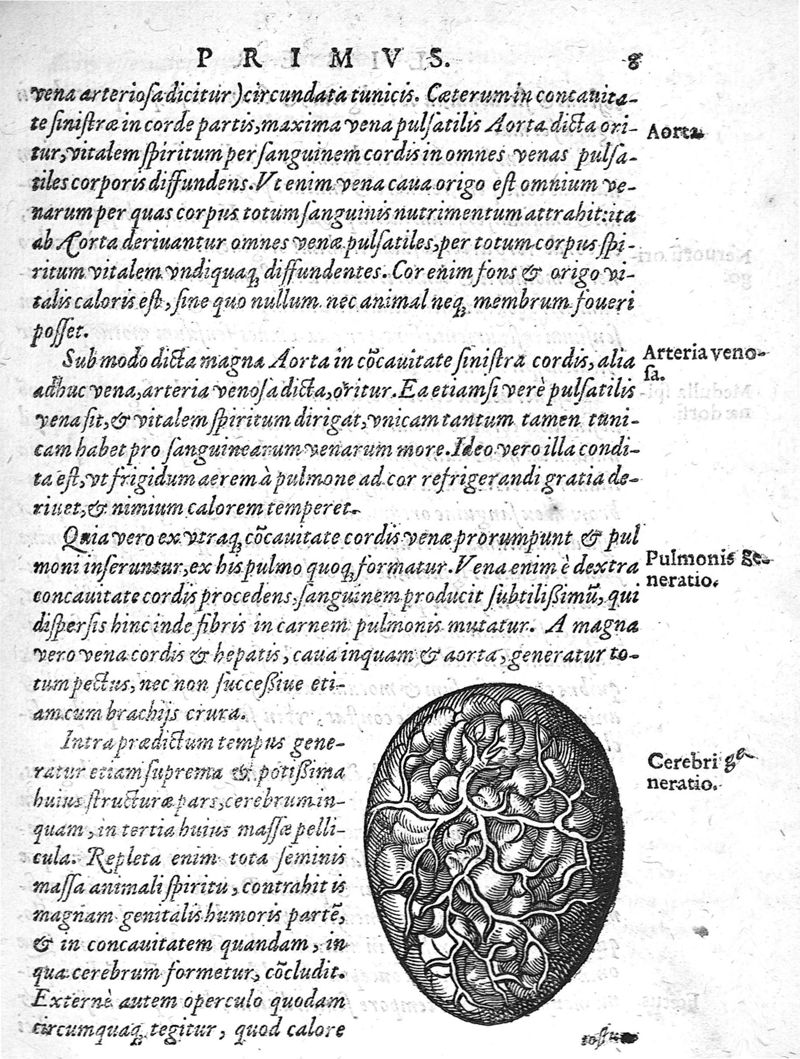 PRIMVS. 8
vena arteriosa dicitur) circundata tunicis. Cæterum in concauita-
te sinistræ in corde partis, maxima vena pulsatilis Aorta dicta ori-
tur, vitalem spiritum per sanguinem cordis in omnes venas pulsa-
tiles corporis diffundens. Vt enim vena caua origo est omnium ve-
narum per quas corpus totum sanguinis nutrimentum attrahit: ita
ab Aorta deriuantur omnes venæ pulsatiles, per totum corpus spi-
ritum vitalem vndiquaq; diffundentes. Cor enim fons & origo vi-
talis caloris est, sine quo nullum nec animal neq; membrum foueri
posset.
Aorta
Sub modo dicta magna Aorta in cōcauitate sinistra cordis, alia
adhuc vena, arteria venosa dicta, oritur. Ea etiamsi verè pulsatilis
vena sit, & vitalem spiritum dirigat, vnicam tantum tamen tuni-
cam habet pro sanguinearum venarum more. Ideo vero illa condi-
ta est, vt frigidum aerem à pulmone ad cor refrigerandi gratia de-
riuet, & nimium calorem temperet.
Arteria veno-
sa.
Quia vero ex vtraq; cōcauitate cordis venæ prorumpunt & pul
moni inseruntur, ex his pulmo quoq; formatur. Vena enim è dextra
concauitate cordis procedens, sanguinem producit subtilißimū, qui
dispersis hinc inde fibris in carnem pulmonis mutatur. A magna
vero vena cordis & hepatis, caua inquam & aorta, generatur to-
tum pectus, nec non succeßiue eti-
am cum brachijs crura.
Pulmonis ge-
neratio.
Intra prædictum tempus gene-
ratur etiam suprema & potißima
huius structuræ pars, cerebrum in-
quam, in tertia huius massæ pelli-
cula. Repleta enim tota seminis
massa animali spiritu, contrahit is
magnam genitalis humoris partē,
& in concauitatem quandam, in
qua cerebrum formetur, cōcludit.
Externè autem operculo quodam
circumquaq; tegitur, quod calore
Cerebri ge
neratio.